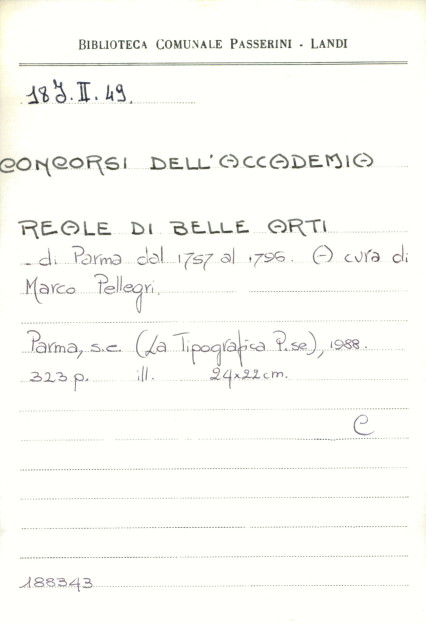 BIBLIOTECA COMUNALE PASSERINI - LANDI
18 J. II. 49.
CONCORSI DELL'ACCADEMIA
REALE DI BELLE ARTI
- di Parma dal 1757 al 1796. A cura di
Marco Pellegri.
Parma, s.e. (La Tipografica P.se), 1988.
323 p. ill. 24x22 cm.
C
188343